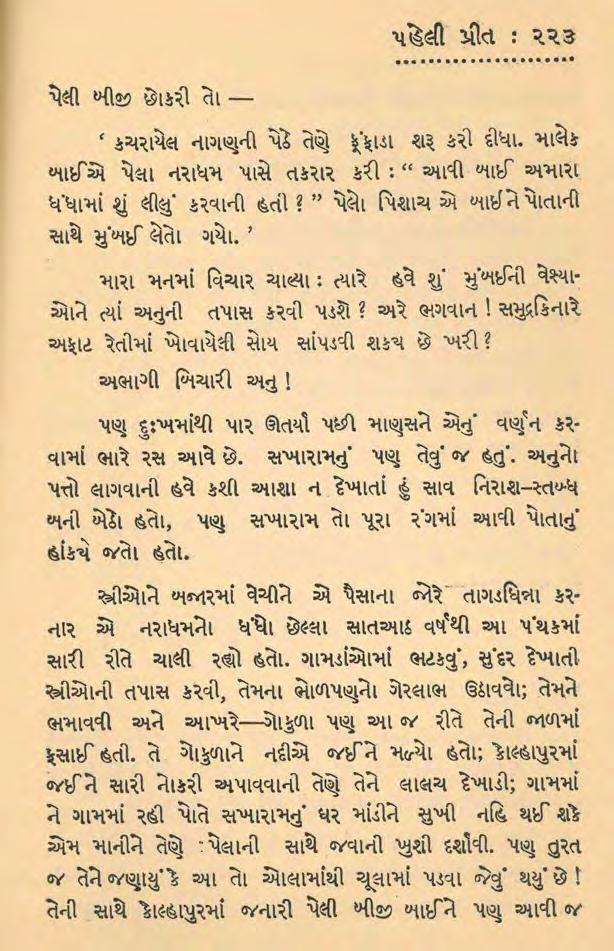 પહેલી પ્રીત : ૨૨૩
પેલી બીજી છોકરી તો —
‘ કચરાયેલ નાગણની પેઠે તેણે ફૂંફાડા શરૂ કરી દીધા. માલેક
બાઈએ પેલા નરાધમ પાસે તકરાર કરી : “ આવી બાઈ અમારા
ધંધામાં શું લીલું કરવાની હતી ? ” પેલો પિશાચ એ બાઈને પોતાની
સાથે મુંબઈ લેતો ગયો. ’
મારા મનમાં વિચાર ચાલ્યા : ત્યારે હવે શું મુંબઈની વેશ્યા-
ઓને ત્યાં અનુની તપાસ કરવી પડશે ? અરે ભગવાન ! સમુદ્રકિનારે
અફાટ રેતીમાં ખોવાયેલી સોય સાંપડવી શક્ય છે ખરી ?
અભાગી બિચારી અનુ !
પણ દુઃખમાંથી પાર ઊતર્યા પછી માણસને એનું વર્ણન કર-
વામાં ભારે રસ આવે છે. સખારામનું પણ તેવું જ હતું. અનુનો
પત્તો લાગવાની હવે કશી આશા ન દેખાતાં હું સાવ નિરાશ–સ્તબ્ધ
બની બેઠો હતો, પણ સખારામ તો પૂરા રંગમાં આવી પોતાનું
હાંક્યે જતો હતો.
સ્ત્રીઓને બજારમાં વેચીને એ પૈસાના જોરે તાગડધિન્ના કર-
નાર એ નરાધમનો ધંધો છેલ્લા સાતઆઠ વર્ષથી આ પંથકમાં
સારી રીતે ચાલી રહ્યો હતો. ગામડાંઓમાં ભટકવું, સુંદર દેખાતી
સ્ત્રીઓની તપાસ કરવી, તેમના ભોળપણનો ગેરલાભ ઉઠાવવો; તેમને
ભમાવવી અને આખરે—ગોકુળા પણ આ જ રીતે તેની જાળમાં
ફસાઈ હતી. તે ગોકુળાને નદીએ જઈને મળ્યો હતો; કોલ્હાપુરમાં
જઈને સારી નોકરી અપાવવાની તેણે તેને લાલચ દેખાડી; ગામમાં
ને ગામમાં રહી પોતે સખારામનું ઘર માંડીને સુખી નહિ થઈ શકે
એમ માનીને તેણે પેલાની સાથે જવાની ખુશી દર્શાવી. પણ તુરત
જ તેને જણાયું કે આ તો ઓલામાંથી ચૂલામાં પડવા જેવું થયું છે !
તેની સાથે કોલ્હાપુરમાં જનારી પેલી બીજી બાઈને પણ આવી જ